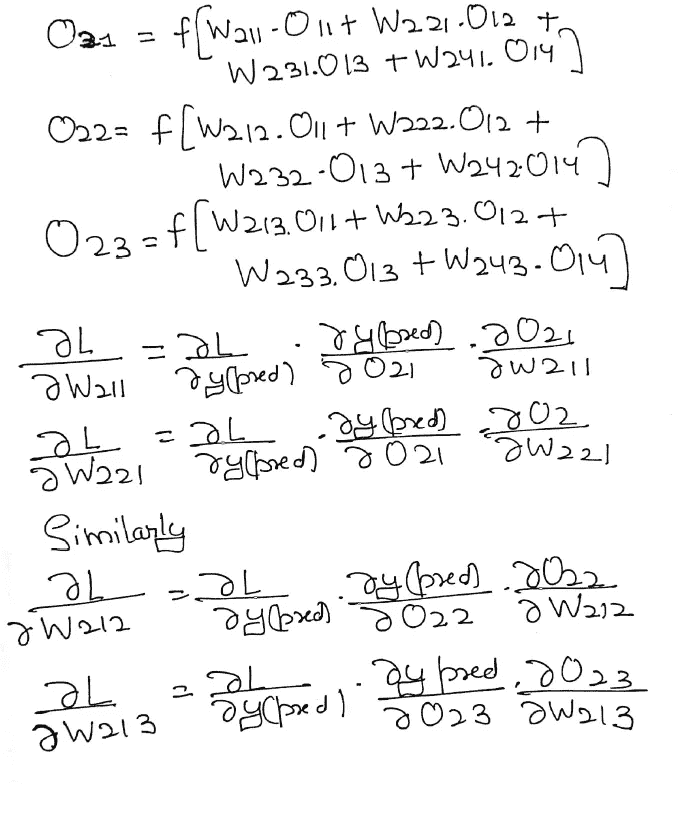 O21 = f[W211.O11 + W221.O12 +
W231.O13 + W241.O14]
O22 = f[W212.O11 + W222.O12 +
W232.O13 + W242O14]
O23 = f[W213.O11 + W223.O12 +
W233.O13 + W243.O14]
∂L/∂W211 = ∂L/∂y(pred) . ∂y(pred)/∂O21 . ∂O21/∂W211
∂L/∂W221 = ∂L/∂y(pred) . ∂y(pred)/∂O21 . ∂O2/∂W221
Similarly
∂L/∂W212 = ∂L/∂y(pred) . ∂y(pred)/∂O22 . ∂O22/∂W212
∂L/∂W213 = ∂L/∂y(pred) . ∂y pred/∂O23 . ∂O23/∂W213